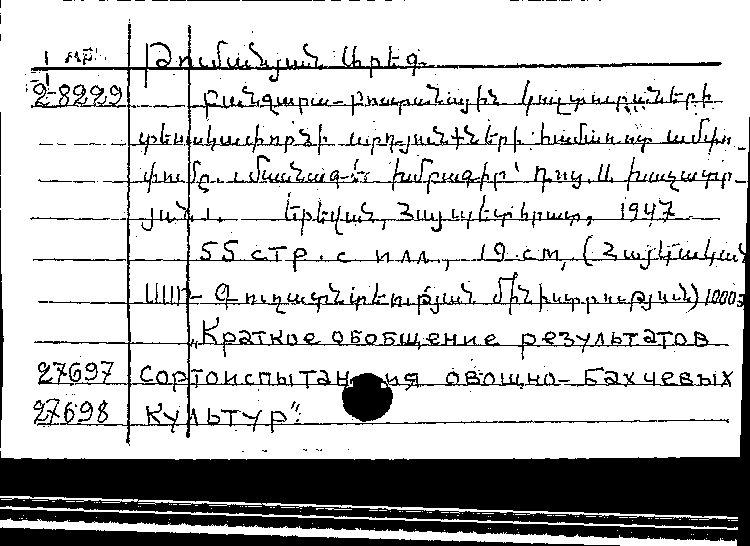 Թումանյան Արեգ
28229 Բանջարա-բոստանային կուլտուրաների
տեսակափորձի արդյունքների համառոտ ամփո-
փումը. մասնագ-ն խմբագիր՝ դոց. Ա. խաչատր-
յան. Երեվան, Հայպետհրատ, 1947
55 стр. с илл., 19 см, (Հայկական
ՍՍՌ- Գյուղատնտեսության մինիստրություն) 1000
„Краткое обобщение результатов
27697 сортоиспытания овощно-бахчевых
27698 культур".